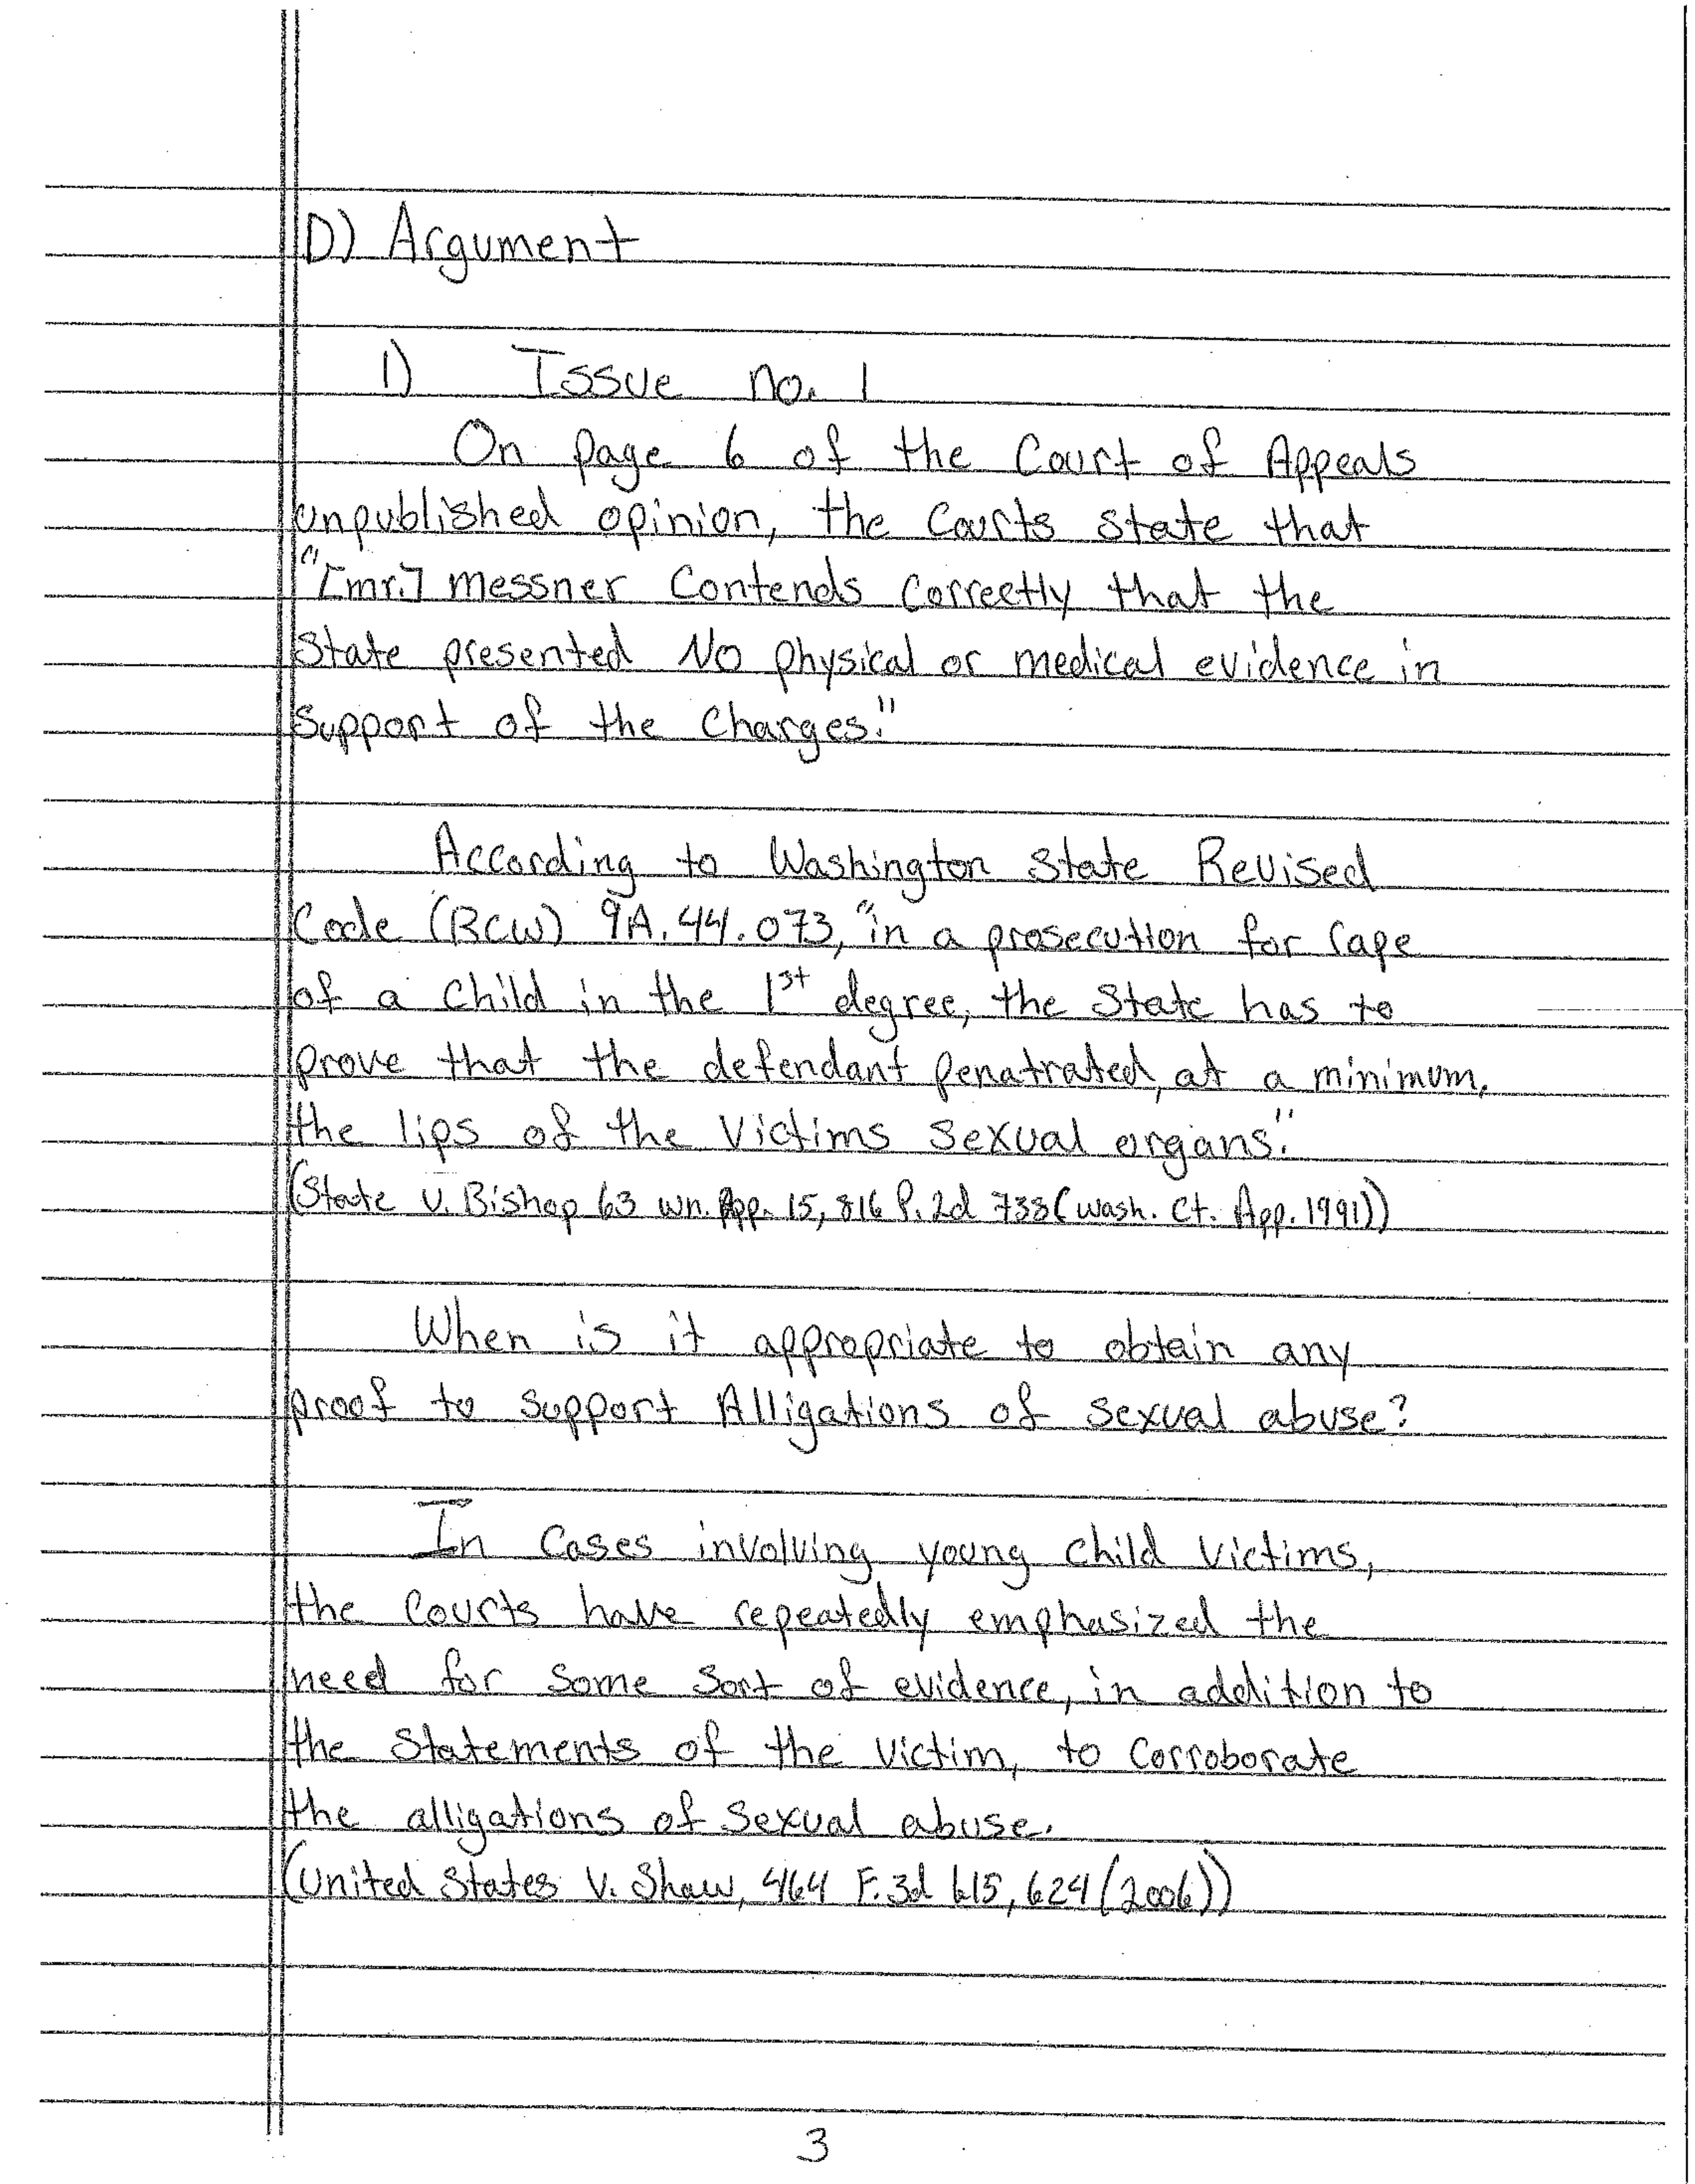 D) Argument
1) Issue no. 1
On page 6 of the Court of Appeals
unpublished opinion, the Courts state that
"[mr.] messner Contends Correctly that the
State presented No physical or medical evidence in
Support of the Charges."
According to Washington State Revised
Code (RCW) 9A.44.073, "in a prosecution for rape
of a Child in the 1st degree, the State has to
prove that the defendant penatrated, at a minimum,
the lips of the Victims Sexual organs."
(State V. Bishop 63 Wn. App. 15, 816 P. 2d 738 (Wash. Ct. App. 1991))
When is it appropriate to obtain any
proof to Support Alligations of Sexual abuse?
In Cases involving young Child Victims,
the Courts have repeatedly emphasized the
need for Some Sort of evidence, in addition to
the Statements of the Victim, to Corroborate
the alligations of Sexual abuse.
(United States V. Shaw, 464 F. 3d 615, 624 (2006))
3